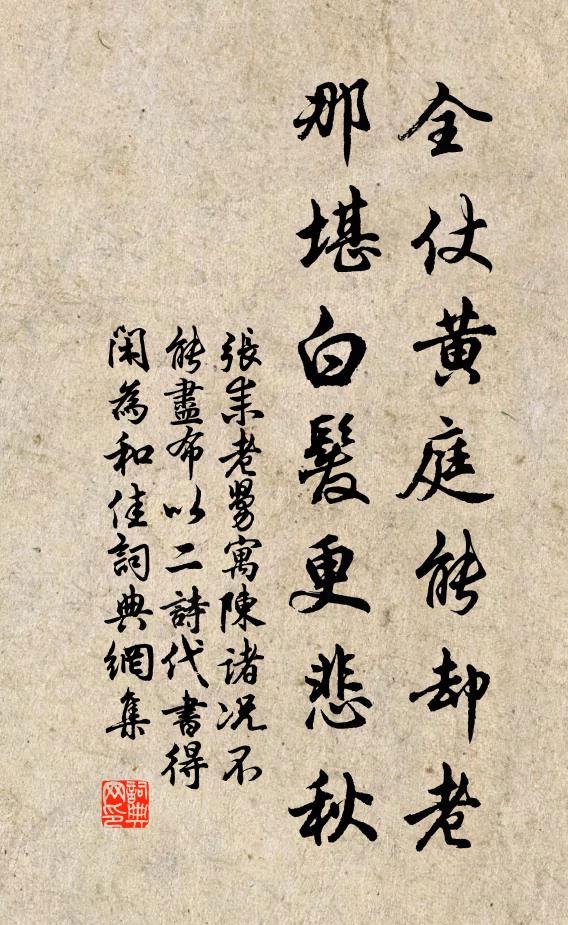 全仗黃庭能却老
那堪白髮更悲秋
張耒老舅寓陳諸況不
能盡布以二詩代書得
閑為和佳詞典網集
詞典
网印